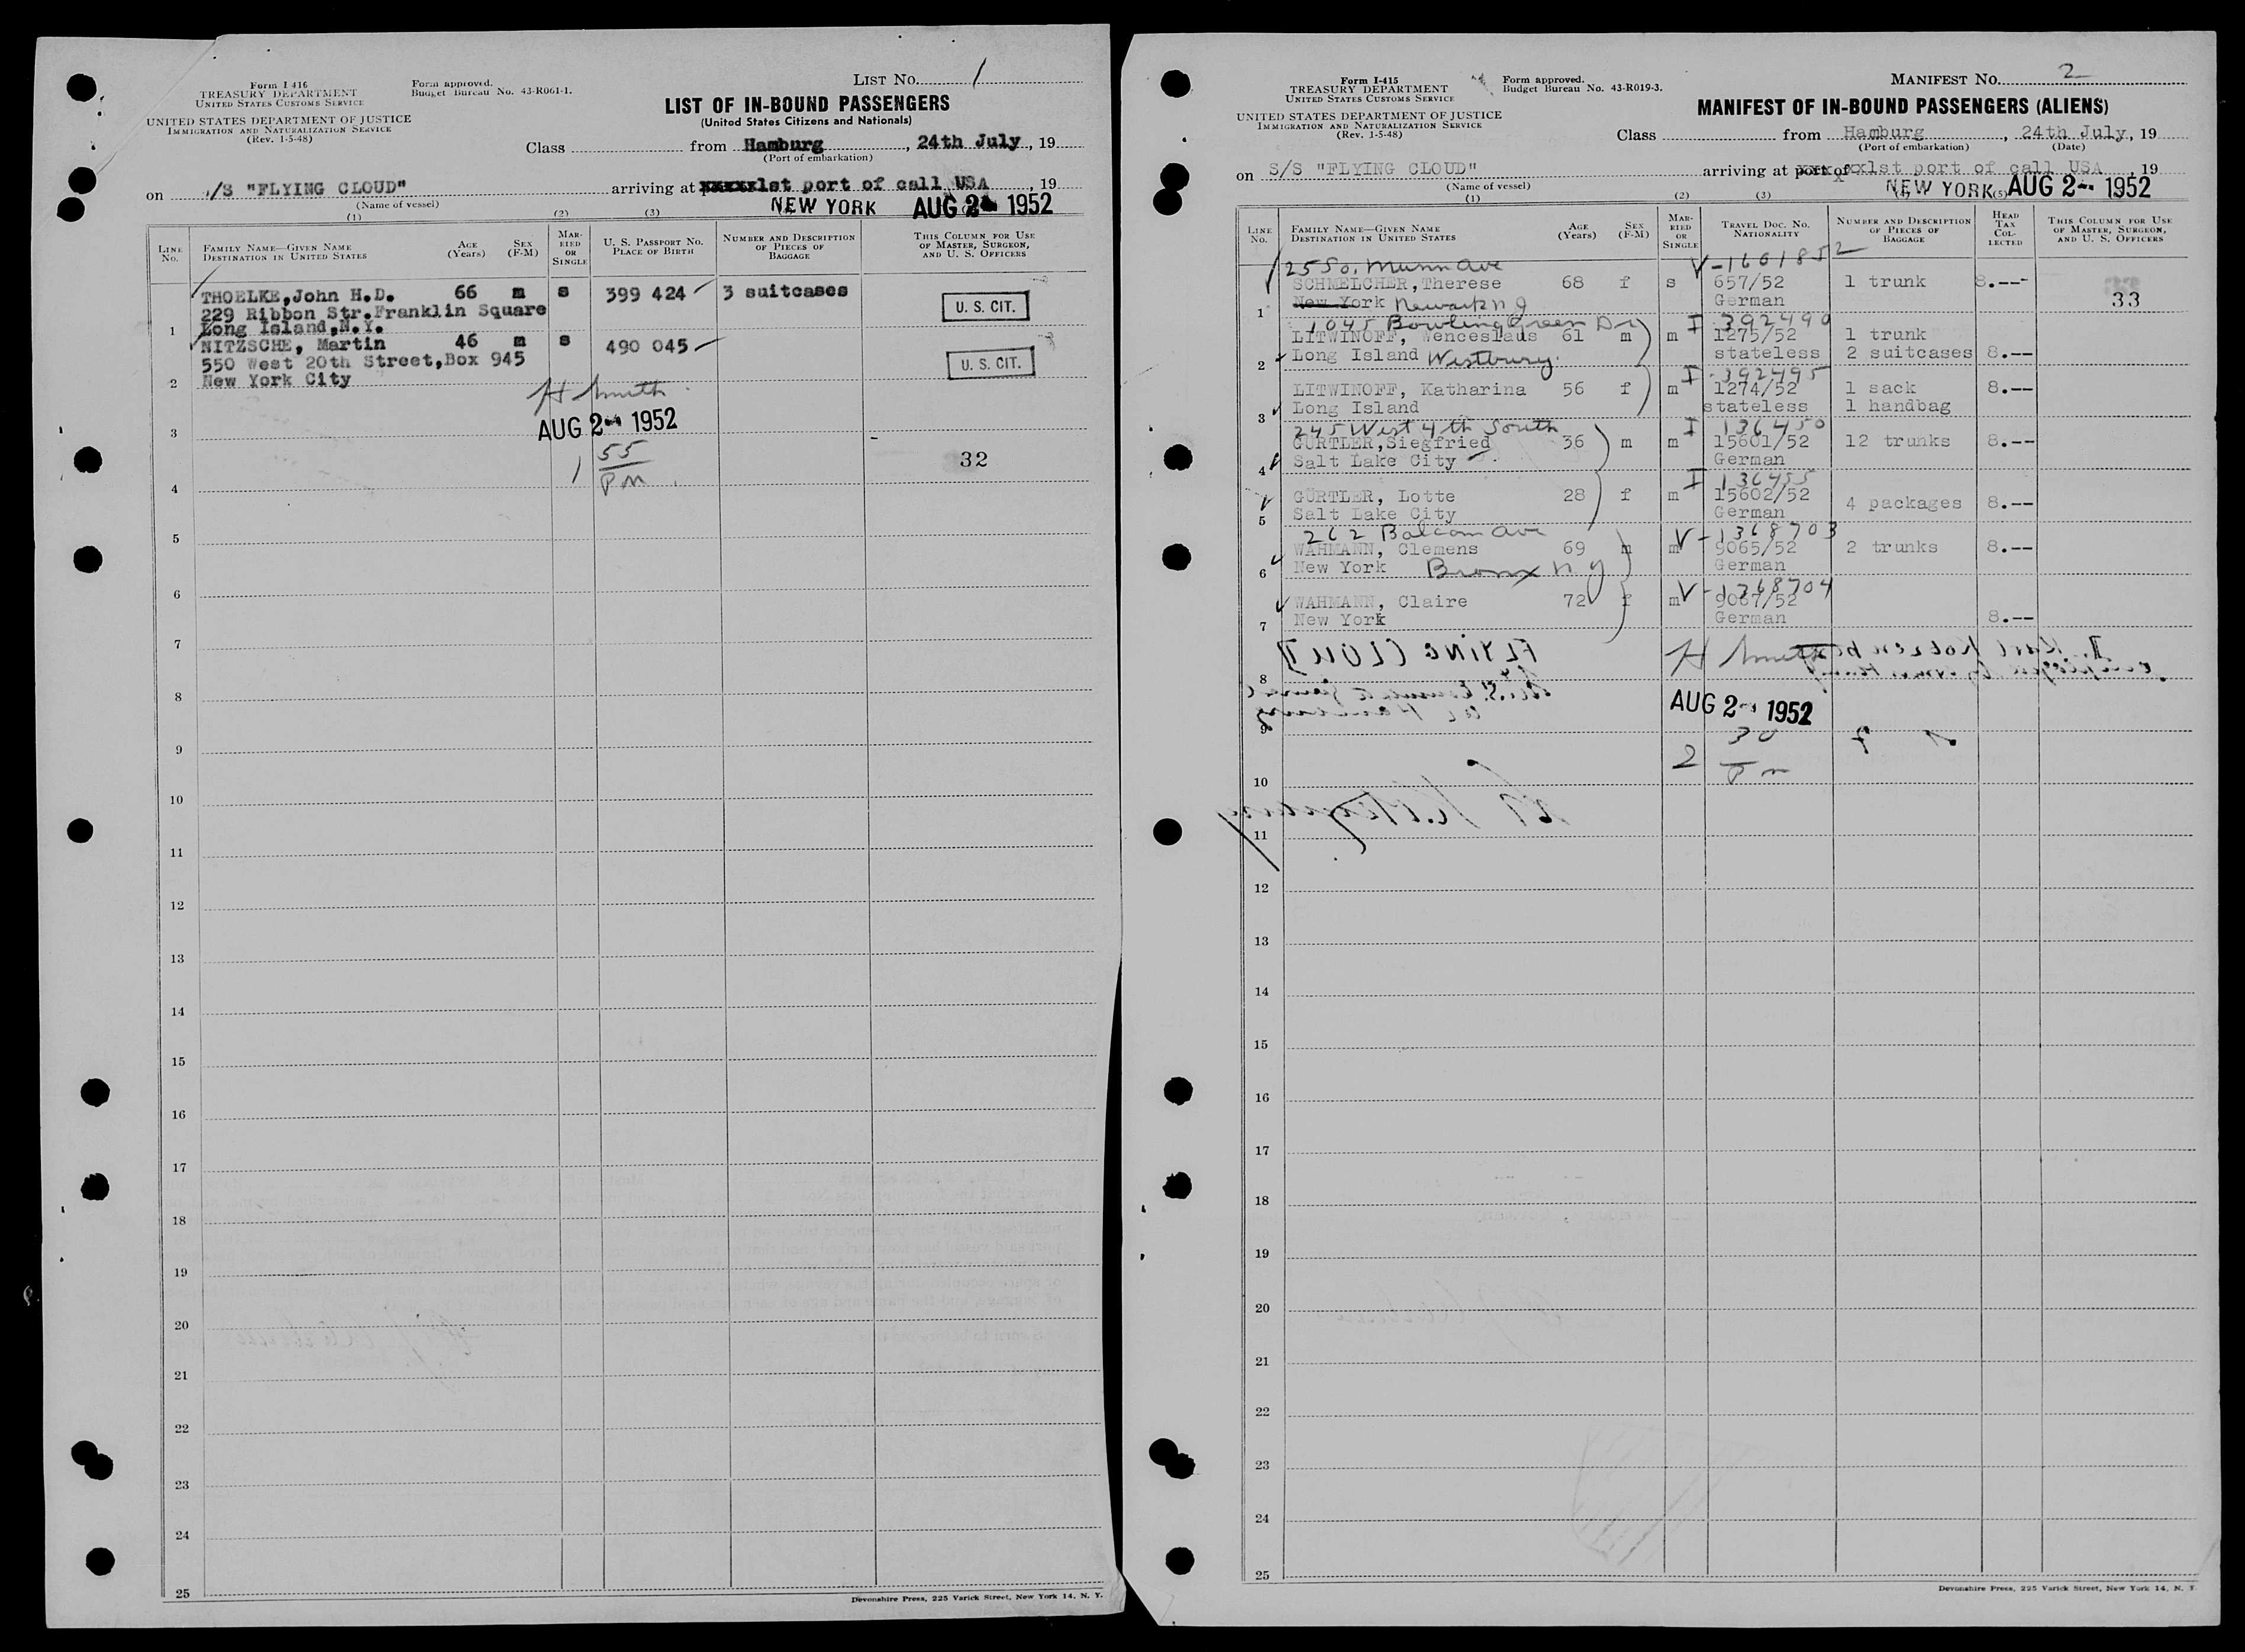 Form I-416
TREASURY DEPARTMENT
UNITED STATES CUSTOMS SERVICE
UNITED STATES DEPARTMENT OF JUSTICE
IMMIGRATION AND NATURALIZATION SERVICE
(Rev. 1-5-48)
Form approved.
Budget Bureau No. 43-R061-1.
LIST NO. 1
LIST OF IN-BOUND PASSENGERS
(United States Citizens and Nationals)
Class from Hamburg, 24th July, 19
(Port of embarkation)
on /S "FLYING CLOUD" arriving at xxxxx1st port of call USA, 19
(Name of vessel)
NEW YORK AUG 2 1952
(1) (2) (3)
LINE No. FAMILY NAME—GIVEN NAME DESTINATION IN UNITED STATES AGE (Years) SEX (F-M) MARRIED OR SINGLE U. S. PASSPORT NO. PLACE OF BIRTH NUMBER AND DESCRIPTION OF PIECES OF BAGGAGE THIS COLUMN FOR USE OF MASTER, SURGEON, AND U. S. OFFICERS
THOELKE,John H.D. 66 m s 399 424 3 suitcases U. S. CIT.
229 Ribbon Str.Franklin Square
1 Long Island,N.Y.
NITZSCHE, Martin 46 m s 490 045 U. S. CIT.
550 West 20th Street,Box 945
2 New York City
H Smith
3 AUG 2 1952
1 55 32
4 Pm
5
6
7
8
9
10
11
12
13
14
15
16
17
18
19
20
21
22
23
24
25
Devonshire Press, 225 Varick Street, New York 14, N. Y.
Form I-415
TREASURY DEPARTMENT
UNITED STATES CUSTOMS SERVICE
UNITED STATES DEPARTMENT OF JUSTICE
IMMIGRATION AND NATURALIZATION SERVICE
(Rev. 1-5-48)
Form approved.
Budget Bureau No. 43-R019-3.
MANIFEST NO. 2
MANIFEST OF IN-BOUND PASSENGERS (ALIENS)
Class from Hamburg, 24th July, 19
(Port of embarkation) (Date)
on S/S "FLYING CLOUD" arriving at port of 1st port of call USA, 19
(Name of vessel)
NEW YORK AUG 2 1952
(1) (2) (3) (5)
LINE No. FAMILY NAME—GIVEN NAME DESTINATION IN UNITED STATES AGE (Years) SEX (F-M) MARRIED OR SINGLE TRAVEL DOC. NO. NATIONALITY NUMBER AND DESCRIPTION OF PIECES OF BAGGAGE HEAD TAX COLLECTED THIS COLUMN FOR USE OF MASTER, SURGEON, AND U. S. OFFICERS
25 So. Munn Ave V-1661852
SCHMELCHER,Therese 68 f s 657/52 1 trunk 8.--
1 New York Newark N J German 33
1045 Bowling Green Dr I 392490
LITWINOFF, Wenceslaus 61 m m 1275/52 1 trunk
2 Long Island Westbury. stateless 2 suitcases 8.--
I-392495
LITWINOFF, Katharina 56 f m 1274/52 1 sack 8.--
3 Long Island stateless 1 handbag
245 West 4th South I 136450
GÜRTLER,Siegfried 36 m m 15601/52 12 trunks 8.--
4 Salt Lake City German
I 136455
GÜRTLER, Lotte 28 f m 15602/52 4 packages 8.--
5 Salt Lake City German
262 Balcom Ave V-1368703
WAHMANN, Clemens 69 m m 9065/52 2 trunks 8.--
6 New York Bronx N Y German
V-1368704
WAHMANN, Claire 72 f m 9067/52
7 New York German 8.--
FLYING CLOUD H Smith
8
AUG 2 1952
9
2 30
10 Pm
11
12
13
14
15
16
17
18
19
20
21
22
23
24
25
Devonshire Press, 225 Varick Street, New York 14, N. Y.